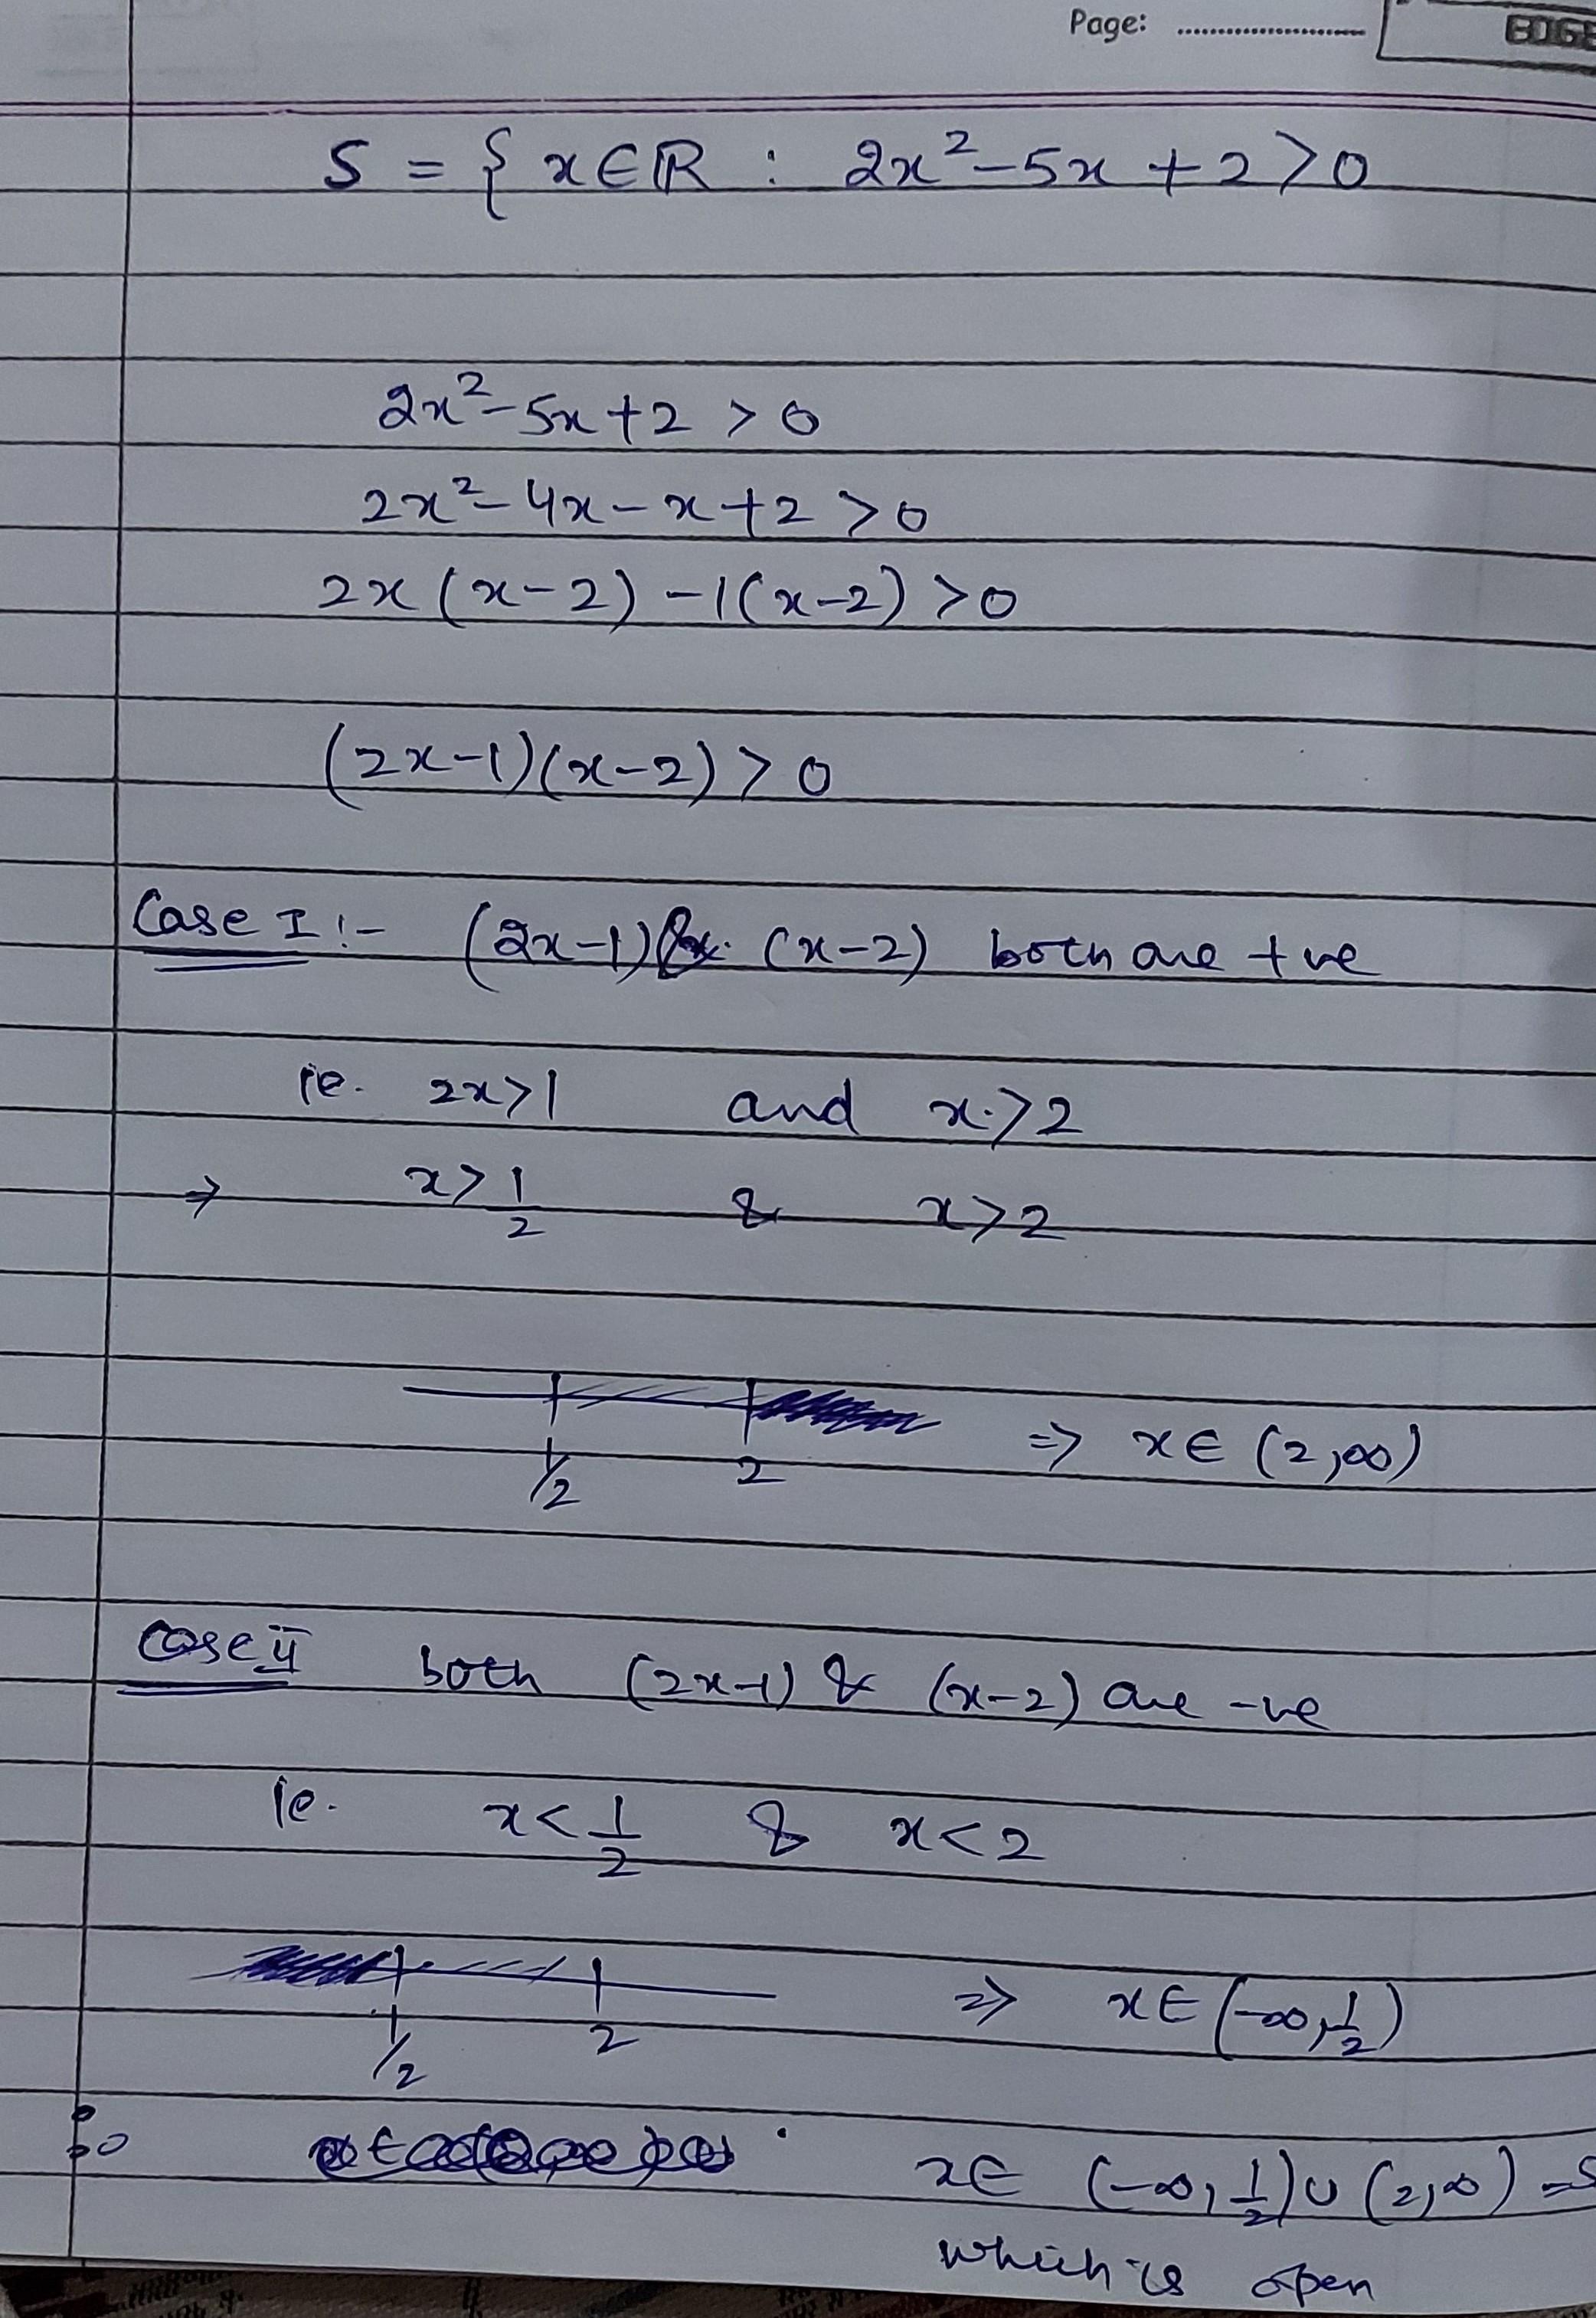 Page: ....................
S = { x∈ℝ : 2x²-5x+2>0
2x²-5x+2 > 0
2x²-4x-x+2 >0
2x(x-2)-1(x-2)>0
(2x-1)(x-2)>0
Case I :- (2x-1) & (x-2) both are +ve
ie. 2x>1 and x>2
⇒ x>1/2 & x>2
1/2 2 ⇒ x∈(2,∞)
Case ii both (2x-1) & (x-2) are -ve
ie. x<1/2 & x<2
1/2 2 ⇒ x∈(-∞,1/2)
x∈ (-∞,1/2)∪(2,∞) =S
which is open